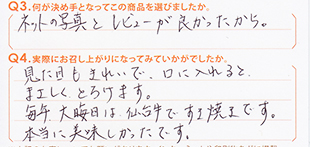 Q3.何が決め手となってこの商品を選びましたか。
ネットの写真とレビューが良かったから。
Q4.実際にお召し上がりになってみていかがでしたか。
見た目もきれいで、口に入れると
まさしくとろけます。
毎年大晦日は仙台牛ですき焼きです。
本当に美味しかったです。